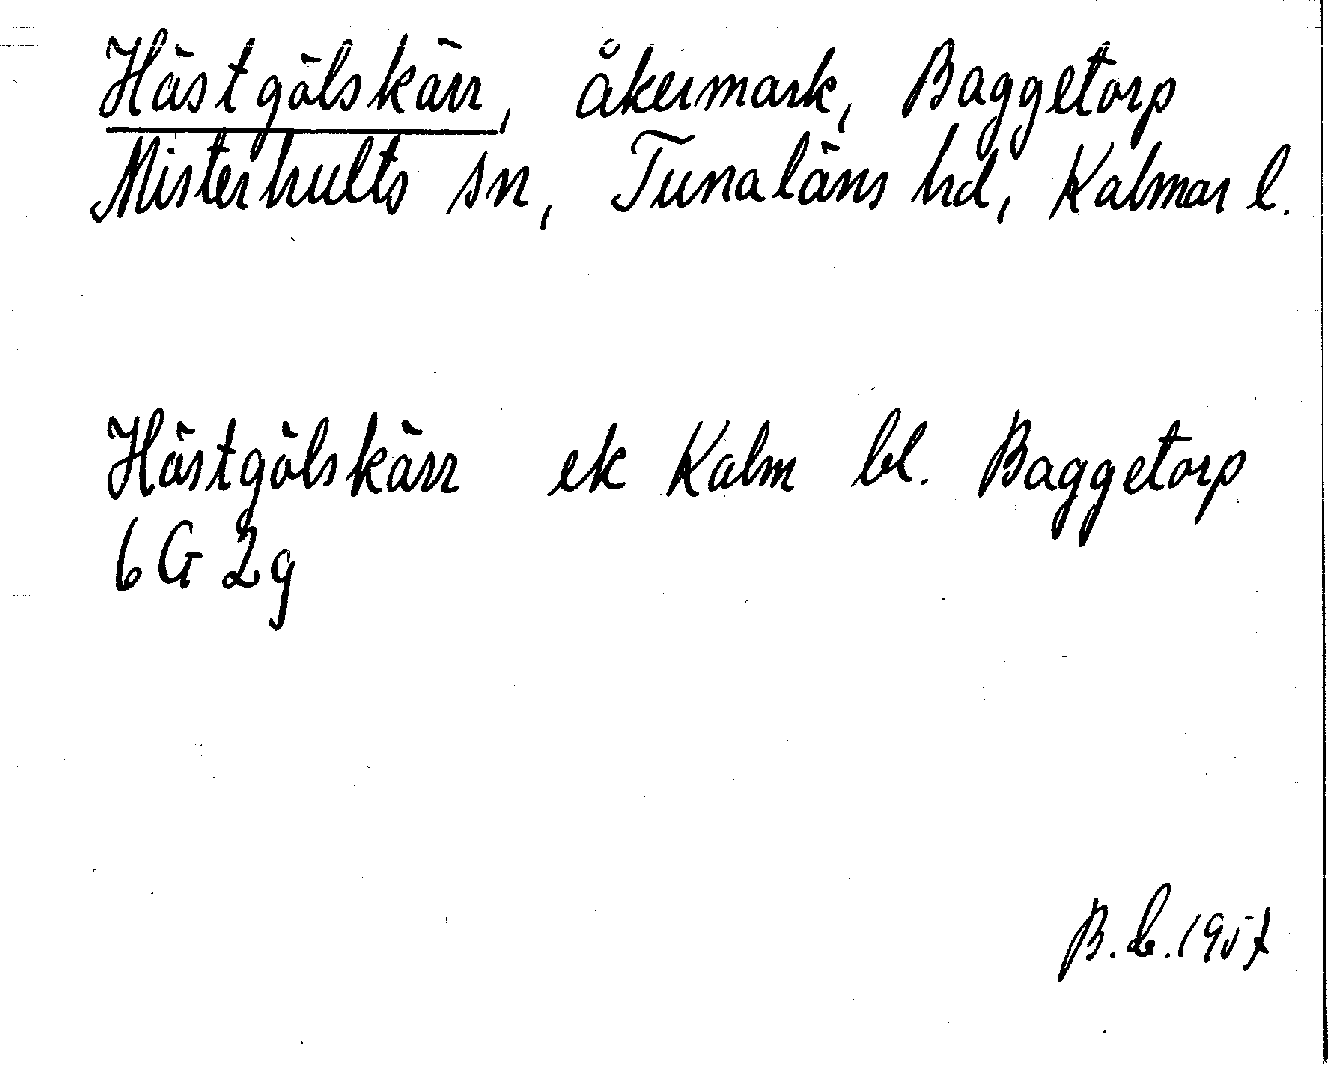 Hästgölskärr, åkermark, Baggetorp
Misterhults sn, Tunaläns hd, Kalmar l.
Hästgölskärr ek Kalm bl. Baggetorp
6 G 2 g
B. L. 1957